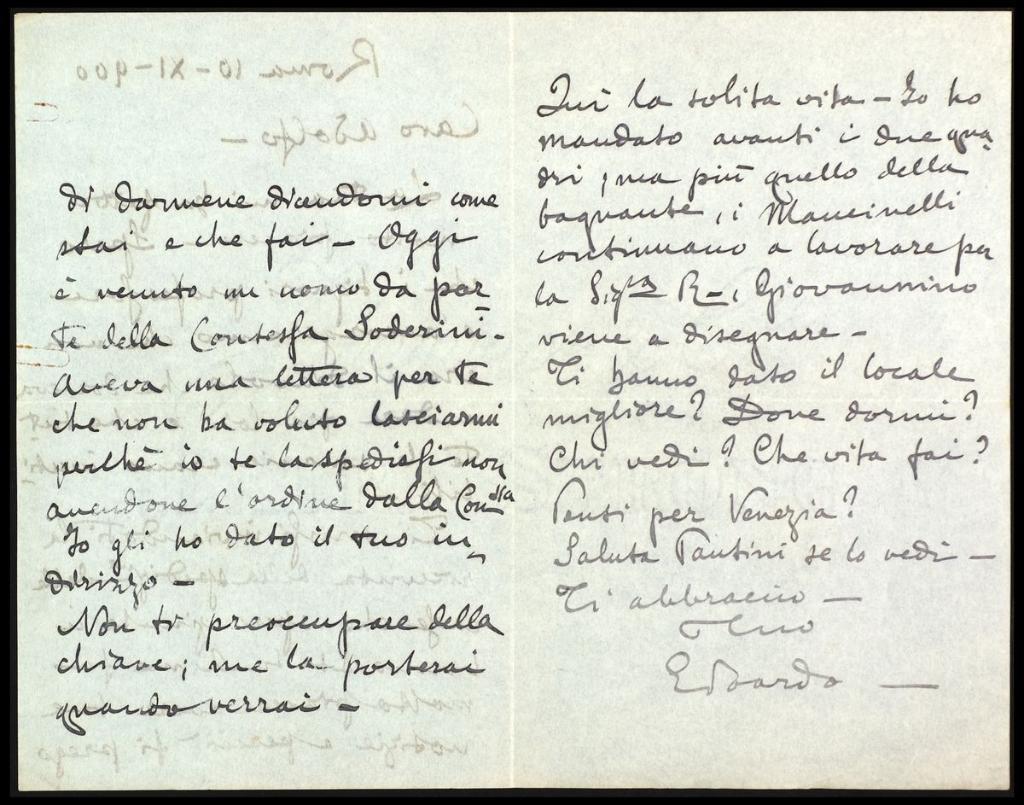 di darmene dicendomi come
stai e che fai – Oggi
è venuto un uomo da par
te della Contessa Soderini –
Aveva una lettera per te
che non ha voluto lasciarmi
perchè io te la spedissi non
avendone l'ordine dalla Conssa
Io gli ho dato il tuo in=
dirizzo –
Non ti preoccupare della
chiave; me la porterai
quando verrai –
Qui la solita vita – Io ho
mandato avanti i due qua=
dri, ma più quello della
bagnante, i Mancinelli
continuano a lavorare per
la Sigra R–, Giovannino
viene a disegnare –
Ti hanno dato il locale
migliore? Dove dormi?
Chi vedi? Che vita fai?
Parti per Venezia?
Saluta Pantini se lo vedi –
Ti abbraccio –
Tuo
Edoardo –
Roma 10-XI-900
Caro Adolfo –